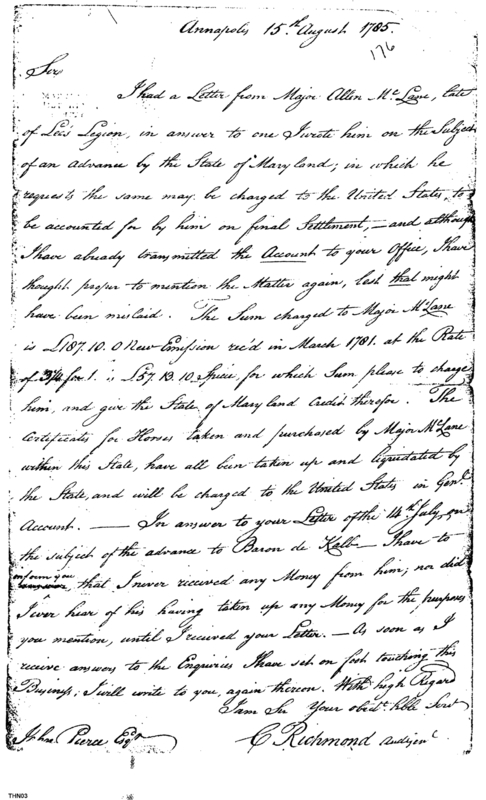 Annapolis 15.th August 1785.
176
Sir
I had a Letter from Major Allen McLane, late
of Lee's Legion, in answer to one I wrote him on the Subject
of an Advance by the State of Maryland; in which he
requests the same may be charged to the United States, to
be accounted for by him on final Settlement, — and although
I have already transmitted the Account to your Office, I have
thought proper to mention the Matter again, lest that might
have been mislaid. The Sum charged to Major McLane
is £187.10.0 New Emission rec'd in March 1781. at the Rate
of 3¼ for 1. is £57.13.10 Specie, for which Sum please to charge
him, and give the State of Maryland Credit therefor. The
Certificates for Horses taken and purchased by Major McLane
within this State, have all been taken up and liquidated by
the State, and will be charged to the United States in Gen.l
Account. — In answer to your Letter of the 14th July, on
the subject of the advance to Baron de Kalb — I have to
inform you
that I never received any Money from him; nor did
I ever hear of his having taken up any Money for the purposes
you mention, until I received your Letter. — As soon as I
receive answers to the Enquiries I have set on foot touching this
Business, I will write to you again thereon. With high Regard
I am Sir Your obed.t hble Serv.t
C Richmond Aud.r Gen.l
John Pierce Esq.r
THN03